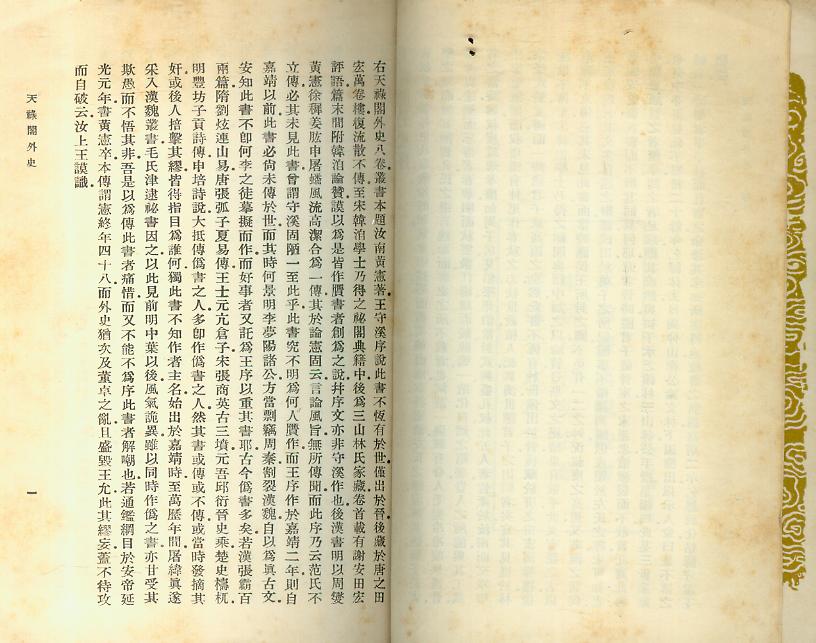 右天祿閣外史八卷叢書本題汝南黃憲著王守溪序說此書不恆有於世僅出於晉後藏於唐之田
宏萬卷樓復流散不傳至宋韓洎學士乃得之祕閣典籍中後爲三山林氏家藏卷首載有謝安田宏
評語篇末間附韓洎論贊謨以爲是皆作贋書者創爲之說幷序文亦非守溪作也後漢書明以周燮
黃憲徐穉姜肱申屠蟠風流高潔合爲一傳其於論憲固云言論風旨無所傳聞而此序乃云范氏不
立傳必其未見此書曾謂守溪固陋一至此乎此書究不明爲何人贋作而王序作於嘉靖二年則自
嘉靖以前此書必尙未傳於世而其時何景明李夢陽諸公方當剽竊周秦割裂漢魏自以爲眞古文
安知此書不卽何李之徒摹擬而作而好事者又託爲王序以重其書耶古今僞書多矣若漢張霸百
兩篇隋劉炫連山易唐張弧子夏易傳王士元亢倉子宋張商英古三墳元吾邱衍晉史乘楚史檮杌
明豐坊子貢詩傳申培詩說大抵傳僞書之人多卽作僞書之人然其書或傳或不傳或當時發摘其
奸或後人掊擊其繆皆得指目爲誰何獨此書不知作者主名始出於嘉靖時至萬歷年間屠緯眞遂
采入漢魏叢書毛氏津逮祕書因之以此見前明中葉以後風氣詭異雖以同時作僞之書亦甘受其
欺愚而不悟其非吾是以爲傳此書者痛惜而又不能不爲序此書者解嘲也若通鑑綱目於安帝延
光元年書黃憲卒本傳謂憲終年四十八而外史猶次及董卓之亂且盛毀王允此其繆妄蓋不待攻
而自破云汝上王謨識
天祿閣外史
一